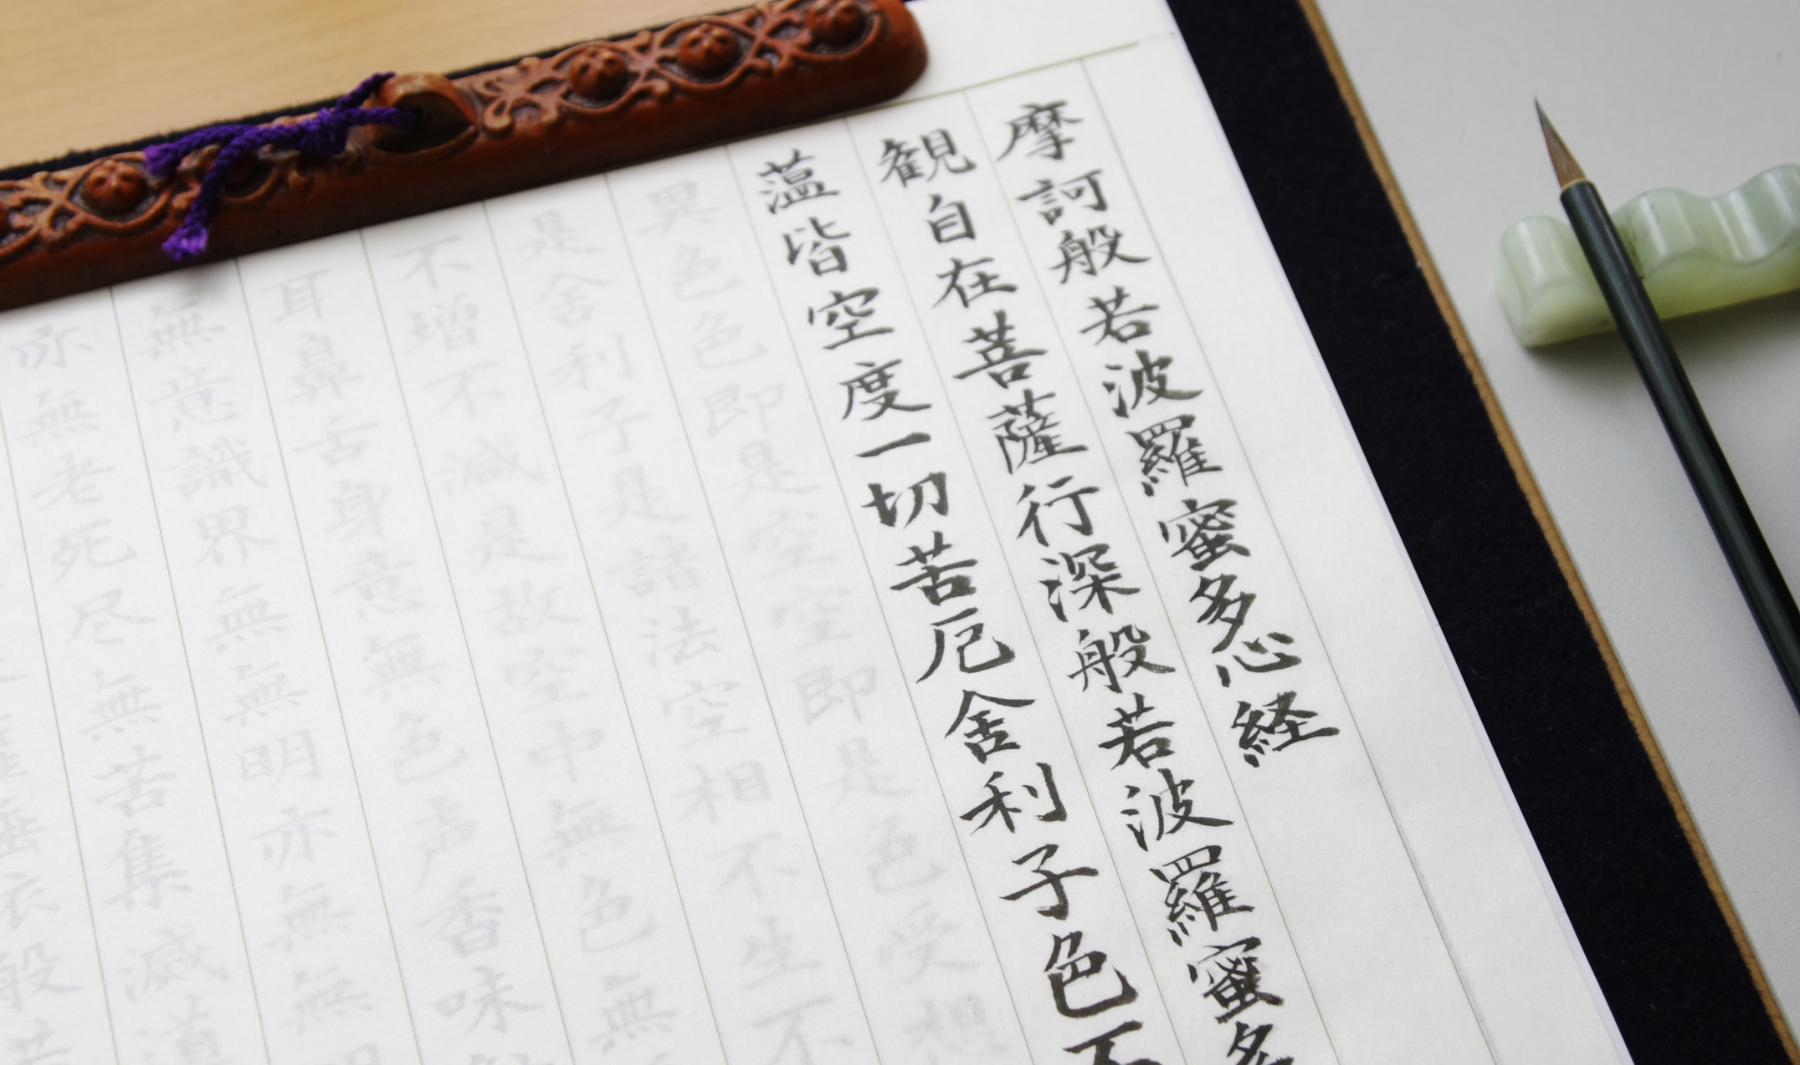 摩訶般若波羅蜜多心経
観自在菩薩行深般若波羅蜜多
薀皆空度一切苦厄舎利子色不
異色色即是空空即是色受想
是舎利子是諸法空相不生不
不増不減是故空中無色無
耳鼻舌身意無色声香味
無意識界無無明亦無無
亦無老死尽無苦集滅道
般若